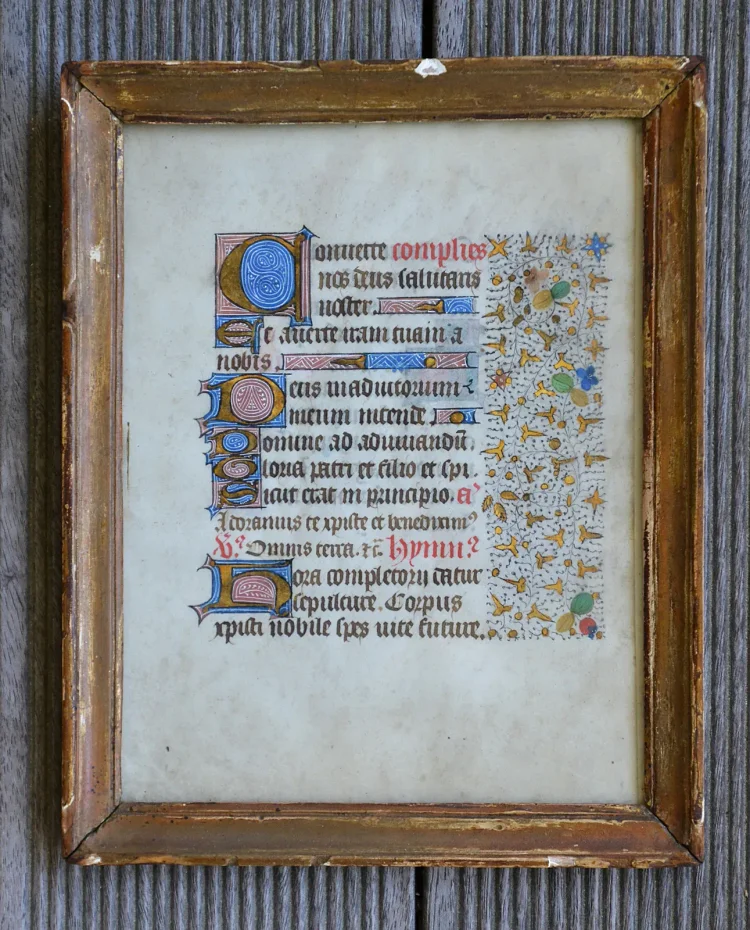 Conuerte complies
nos deus salutaris
noster.
Et auerte iram tuam a
nobis.
Deus in adiutorium
meum intende.
Domine ad adiuuandū
Gloria patri et filio et spi.
Sicut erat in principio. aͣ
Adoramus te xpiste et benedicimꝰ
V. Omnis terra. ⁊c̄. Hymnꝰ
Hora completorij datur
sepulture. Corpus
xpisti nobile spes uite future.